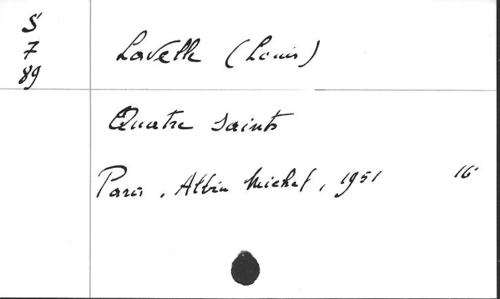 S
7
89
Lavelle (Louis)
Quatre Saints
Paris, Albin Michel, 1951 16°